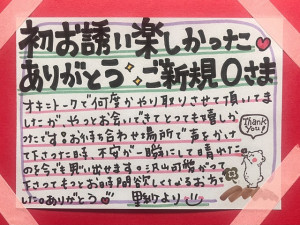 初お誘い楽しかった
ありがとう ご新規Oさま
オキニトークで何度かやり取りさせて頂いてま
したが、やっとお会いできてとっても嬉し
かったです。お待ち合わせ場所で声をかけ
て下さった時、不安が一瞬にして晴れた
のを今でも思い出せます。沢山可愛がって
下さってもっとお時間欲しくなるおちき
した。ありがとう
より
Thank
You!